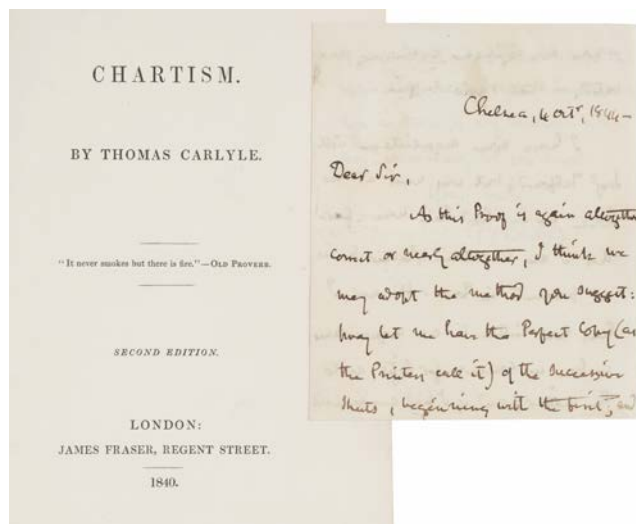 CHARTISM.
BY THOMAS CARLYLE.
"It never smokes but there is fire."—OLD PROVERB.
SECOND EDITION.
LONDON:
JAMES FRASER, REGENT STREET.
1840.
Chelsea, 4 octr, 1844—
Dear Sir,
As this Proof is again altogether
correct or nearly altogether, I think we
may adopt the method you suggest:
pray let me have the Perfect Copy (as
the Printers call it) of the successive
sheets, beginning with the first; and